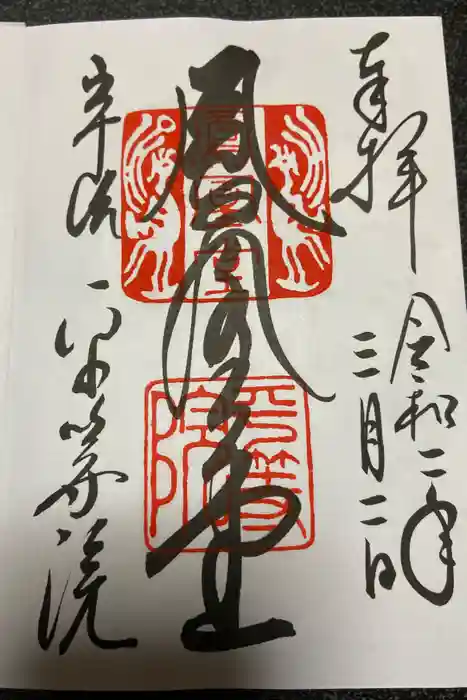 奉拝
令和二年
三月二日
鳳凰堂
宇治
平等院
鳳凰堂
平等院